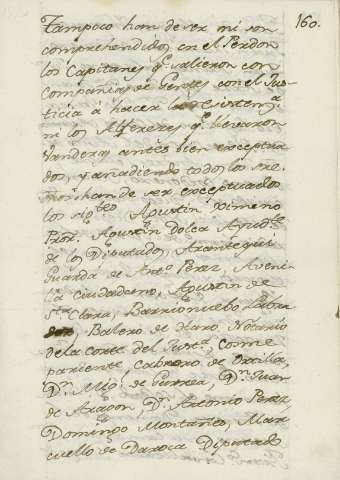 160.
Tampoco han de ser ni son
comprehendidos en el Perdon
los Capitanes q.e salieron con
Compañias de Gentes con el Jus-
ticia á hacer la resistenz.a
ni los Alferezes q.e llevaron
Vanderas antes bien exceptua-
dos, y añadiendo todos los
han de ser exceptuados
los Agustin Ximeno
Agustin Dolca
de los Diputados,
Guarda de Ant.o Perez,
Ciudadano, Agustin de
S.ta Clara, Barrionuebo
Balero de Haro Notario
de la corte del Just.a, Cosme
pariente Cabrero de
D.n de Gurrea, D.n Juan
de Aragon, D.n Antonio Perez,
Domingo Montañes, Mar-
cuello de Daroca Diputado